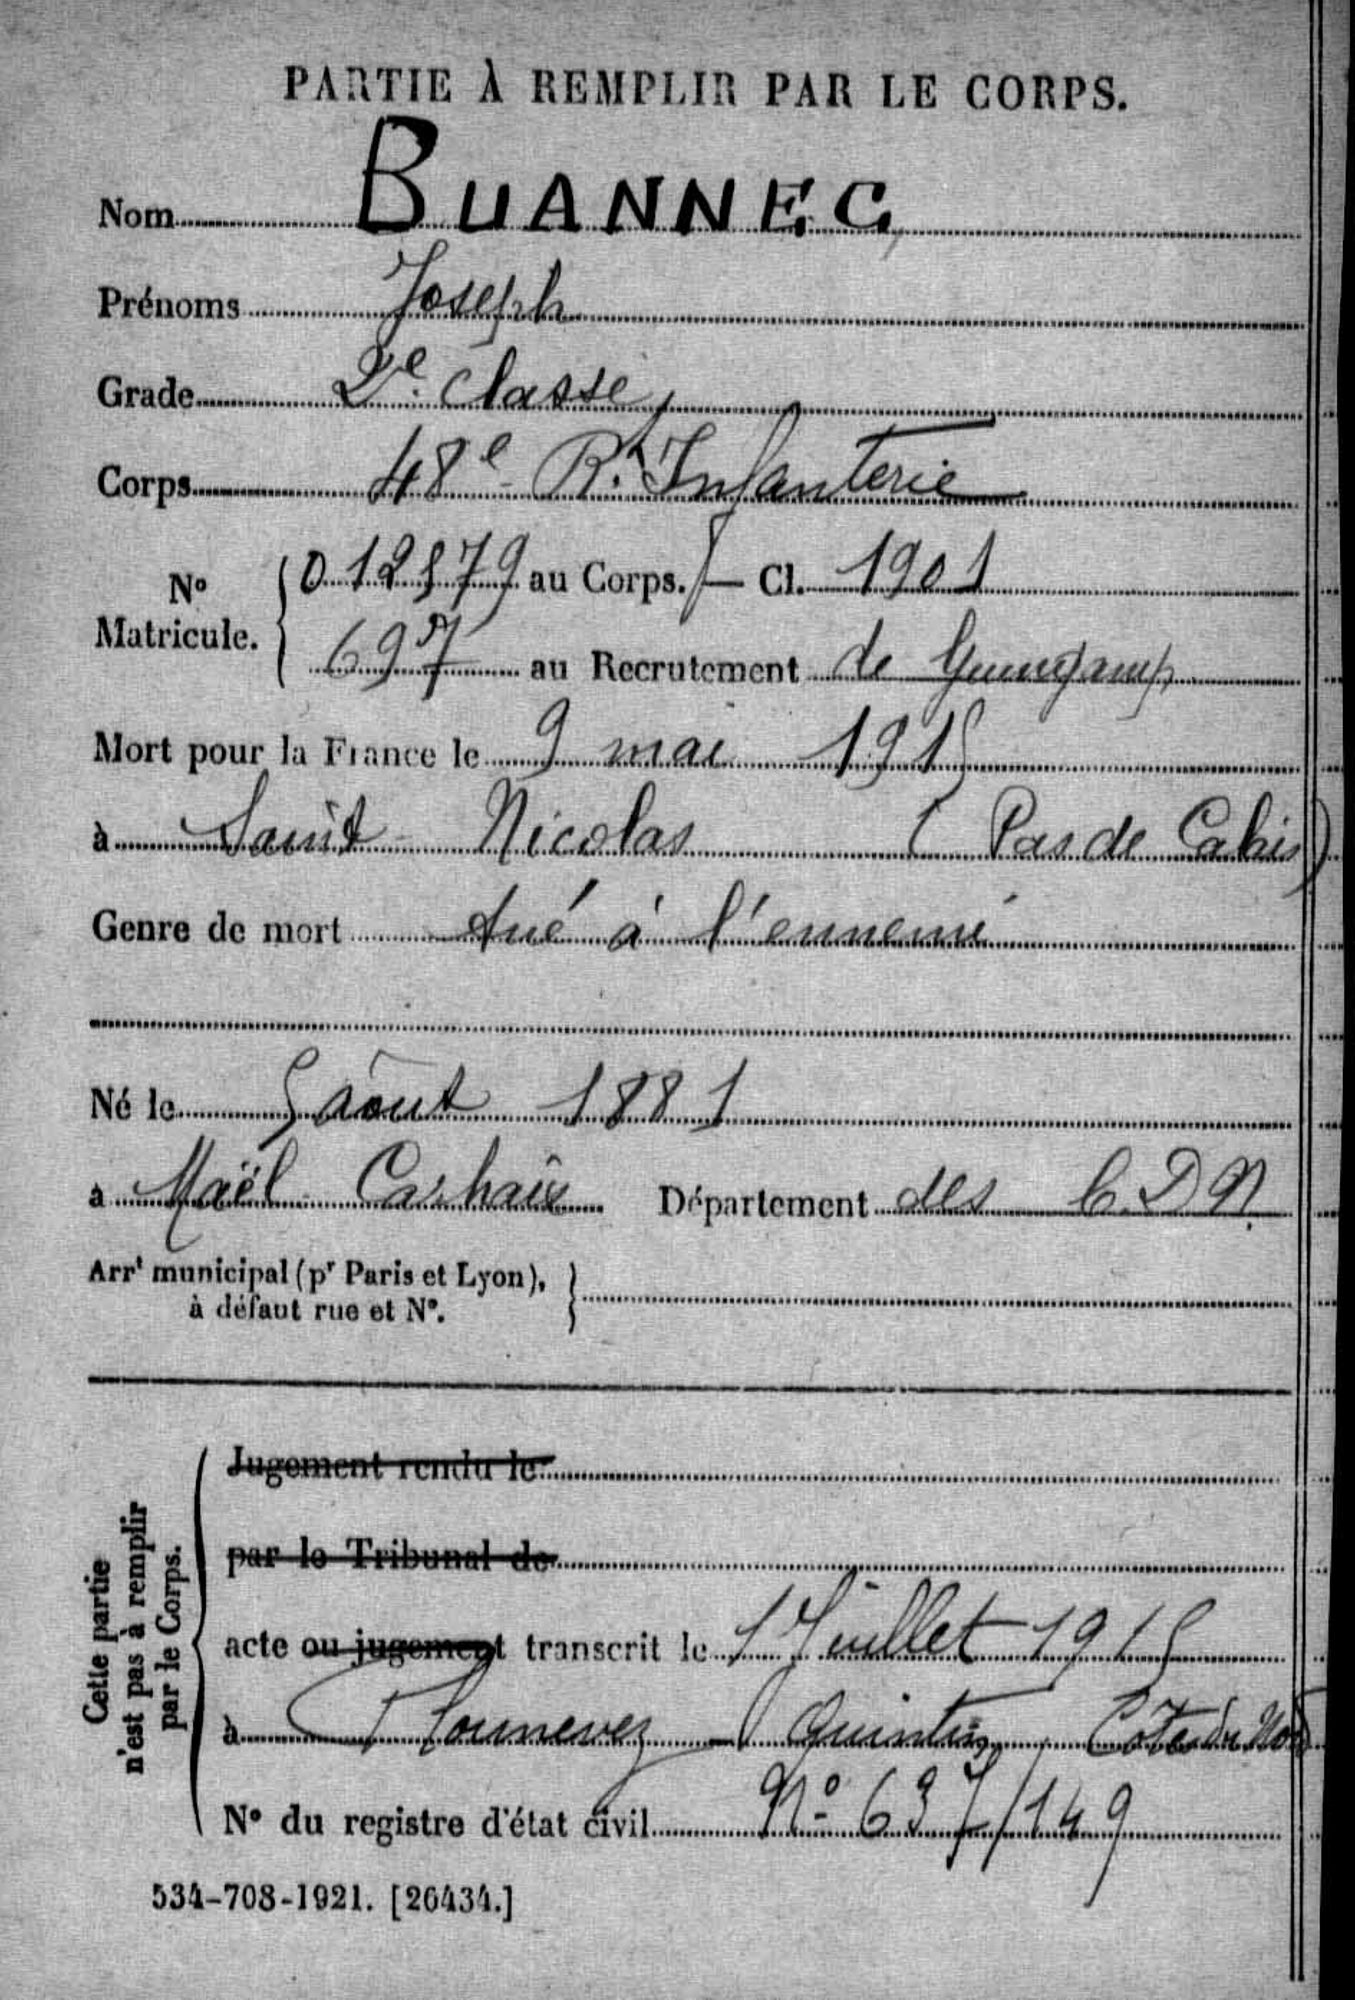 PARTIE À REMPLIR PAR LE CORPS.
Nom BUANNEC
Prénoms Joseph
Grade 2e classe
Corps 48e R. Infanterie
No Matricule. 012579 au Corps. — Cl. 1901
697 au Recrutement de Guingamp
Mort pour la France le 9 mai 1915
à Saint Nicolas (Pas de Calais)
Genre de mort tué à l'ennemi
Né le 5 août 1881
à Maël Carhaix Département des C.D.N.
Arrt municipal (pr Paris et Lyon),
à défaut rue et No.
Cette partie
n'est pas à remplir
par le Corps.
Jugement rendu le
par le Tribunal de
acte ou jugement transcrit le 1 Juillet 1915
à Plounevez Quintin Côtes du Nord
No du registre d'état civil No 637/149
534-708-1921. [26434.]